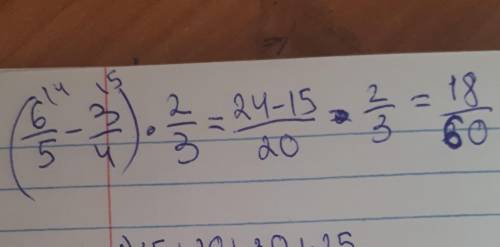 (6/5 \4 - 3/4 \5) · 2/3 = 24-15/20 · 2/3 = 18/60